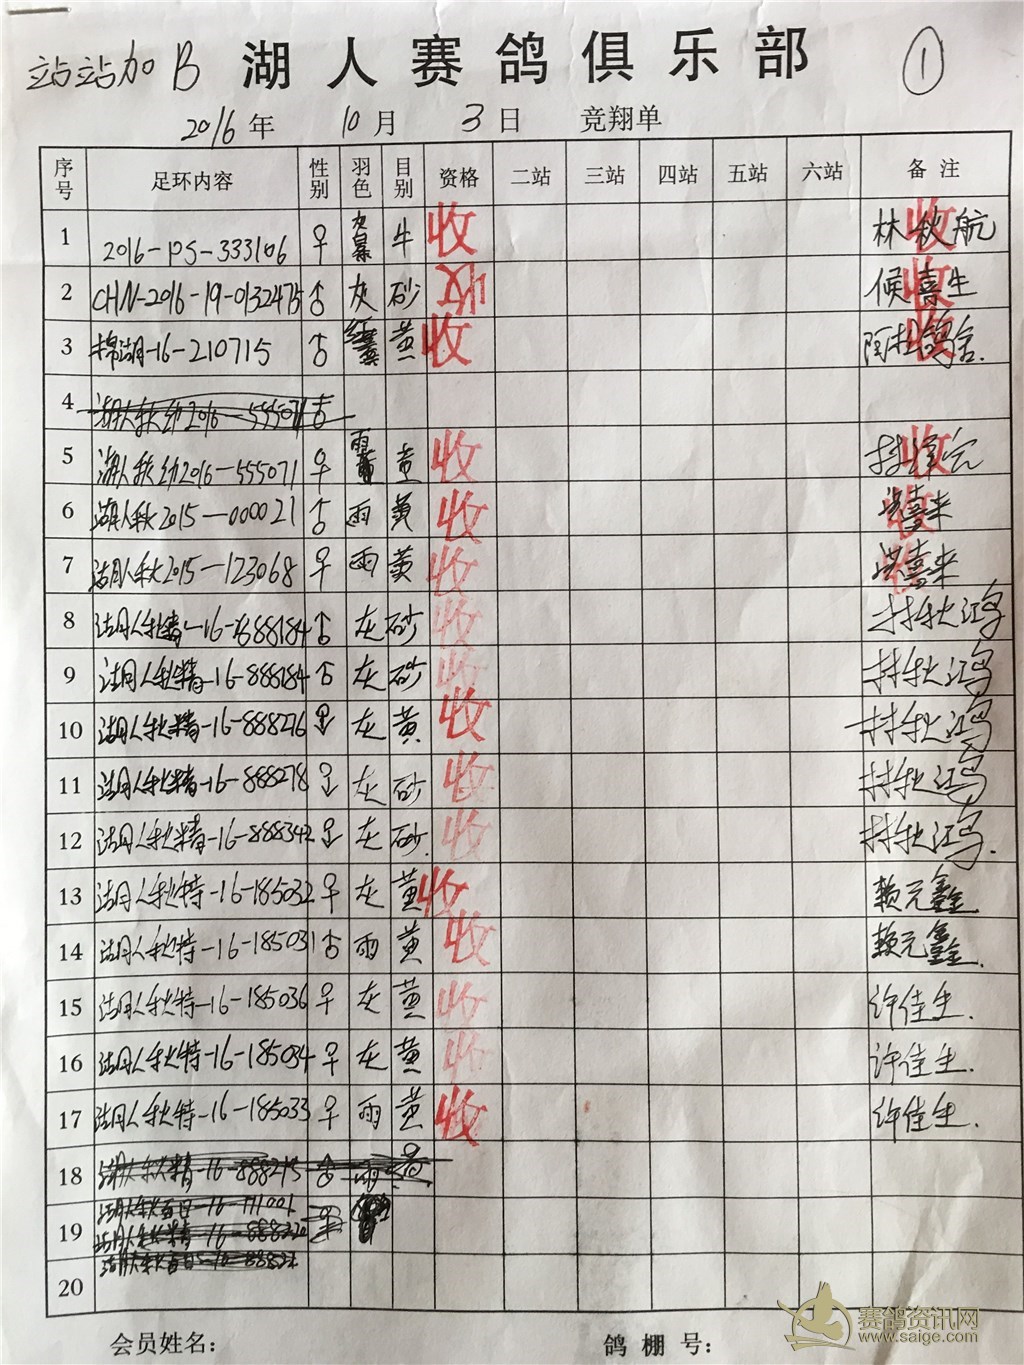 站站加B 湖人赛鸽俱乐部 ①
2016年 10月 3日 竞翔单
序号 足环内容 性别 羽色 目别 资格 二站 三站 四站 五站 六站 备注
1 2016-PS-333106 ♀ 牛 收 林秋航 收
2 CHN-2016-19-0132475 ♂ 灰 砂 收 候喜生 收
3 棉湖-16-210715 ♂ 黄 收 收
4 湖人秋幼2016-555071 ♂
5 湖人秋幼2016-555071 ♀ 黄 收 收
6 湖人秋2015-000021 ♂ 雨 黄 收 洪喜来 收
7 湖人秋2015-123068 ♀ 雨 黄 收 洪喜来 收
8 湖人秋精-16-888184 ♂ 灰 砂 收 林秋鸿
9 湖人秋精-16-888184 ♂ 灰 砂 收 林秋鸿
10 湖人秋精-16-888276 灰 黄 收 林秋鸿
11 湖人秋精-16-888278 ♀ 灰 砂 收 林秋鸿
12 湖人秋精-16-888342 ♀ 灰 砂. 收 林秋鸿.
13 湖人秋特-16-185032 ♀ 灰 黄 收 赖元鑫
14 湖人秋特-16-185031 ♂ 雨 黄 收 赖元鑫.
15 湖人秋特-16-185036 ♀ 灰 黄 收 许佳生.
16 湖人秋特-16-185034 ♀ 灰 黄 收 许佳生.
17 湖人秋特-16-185033 ♀ 雨 黄 收 许佳生.
18 湖人秋精-16-888215 ♂ 雨
19
20
会员姓名: 鸽棚号:
赛鸽资讯网
www.saige.com